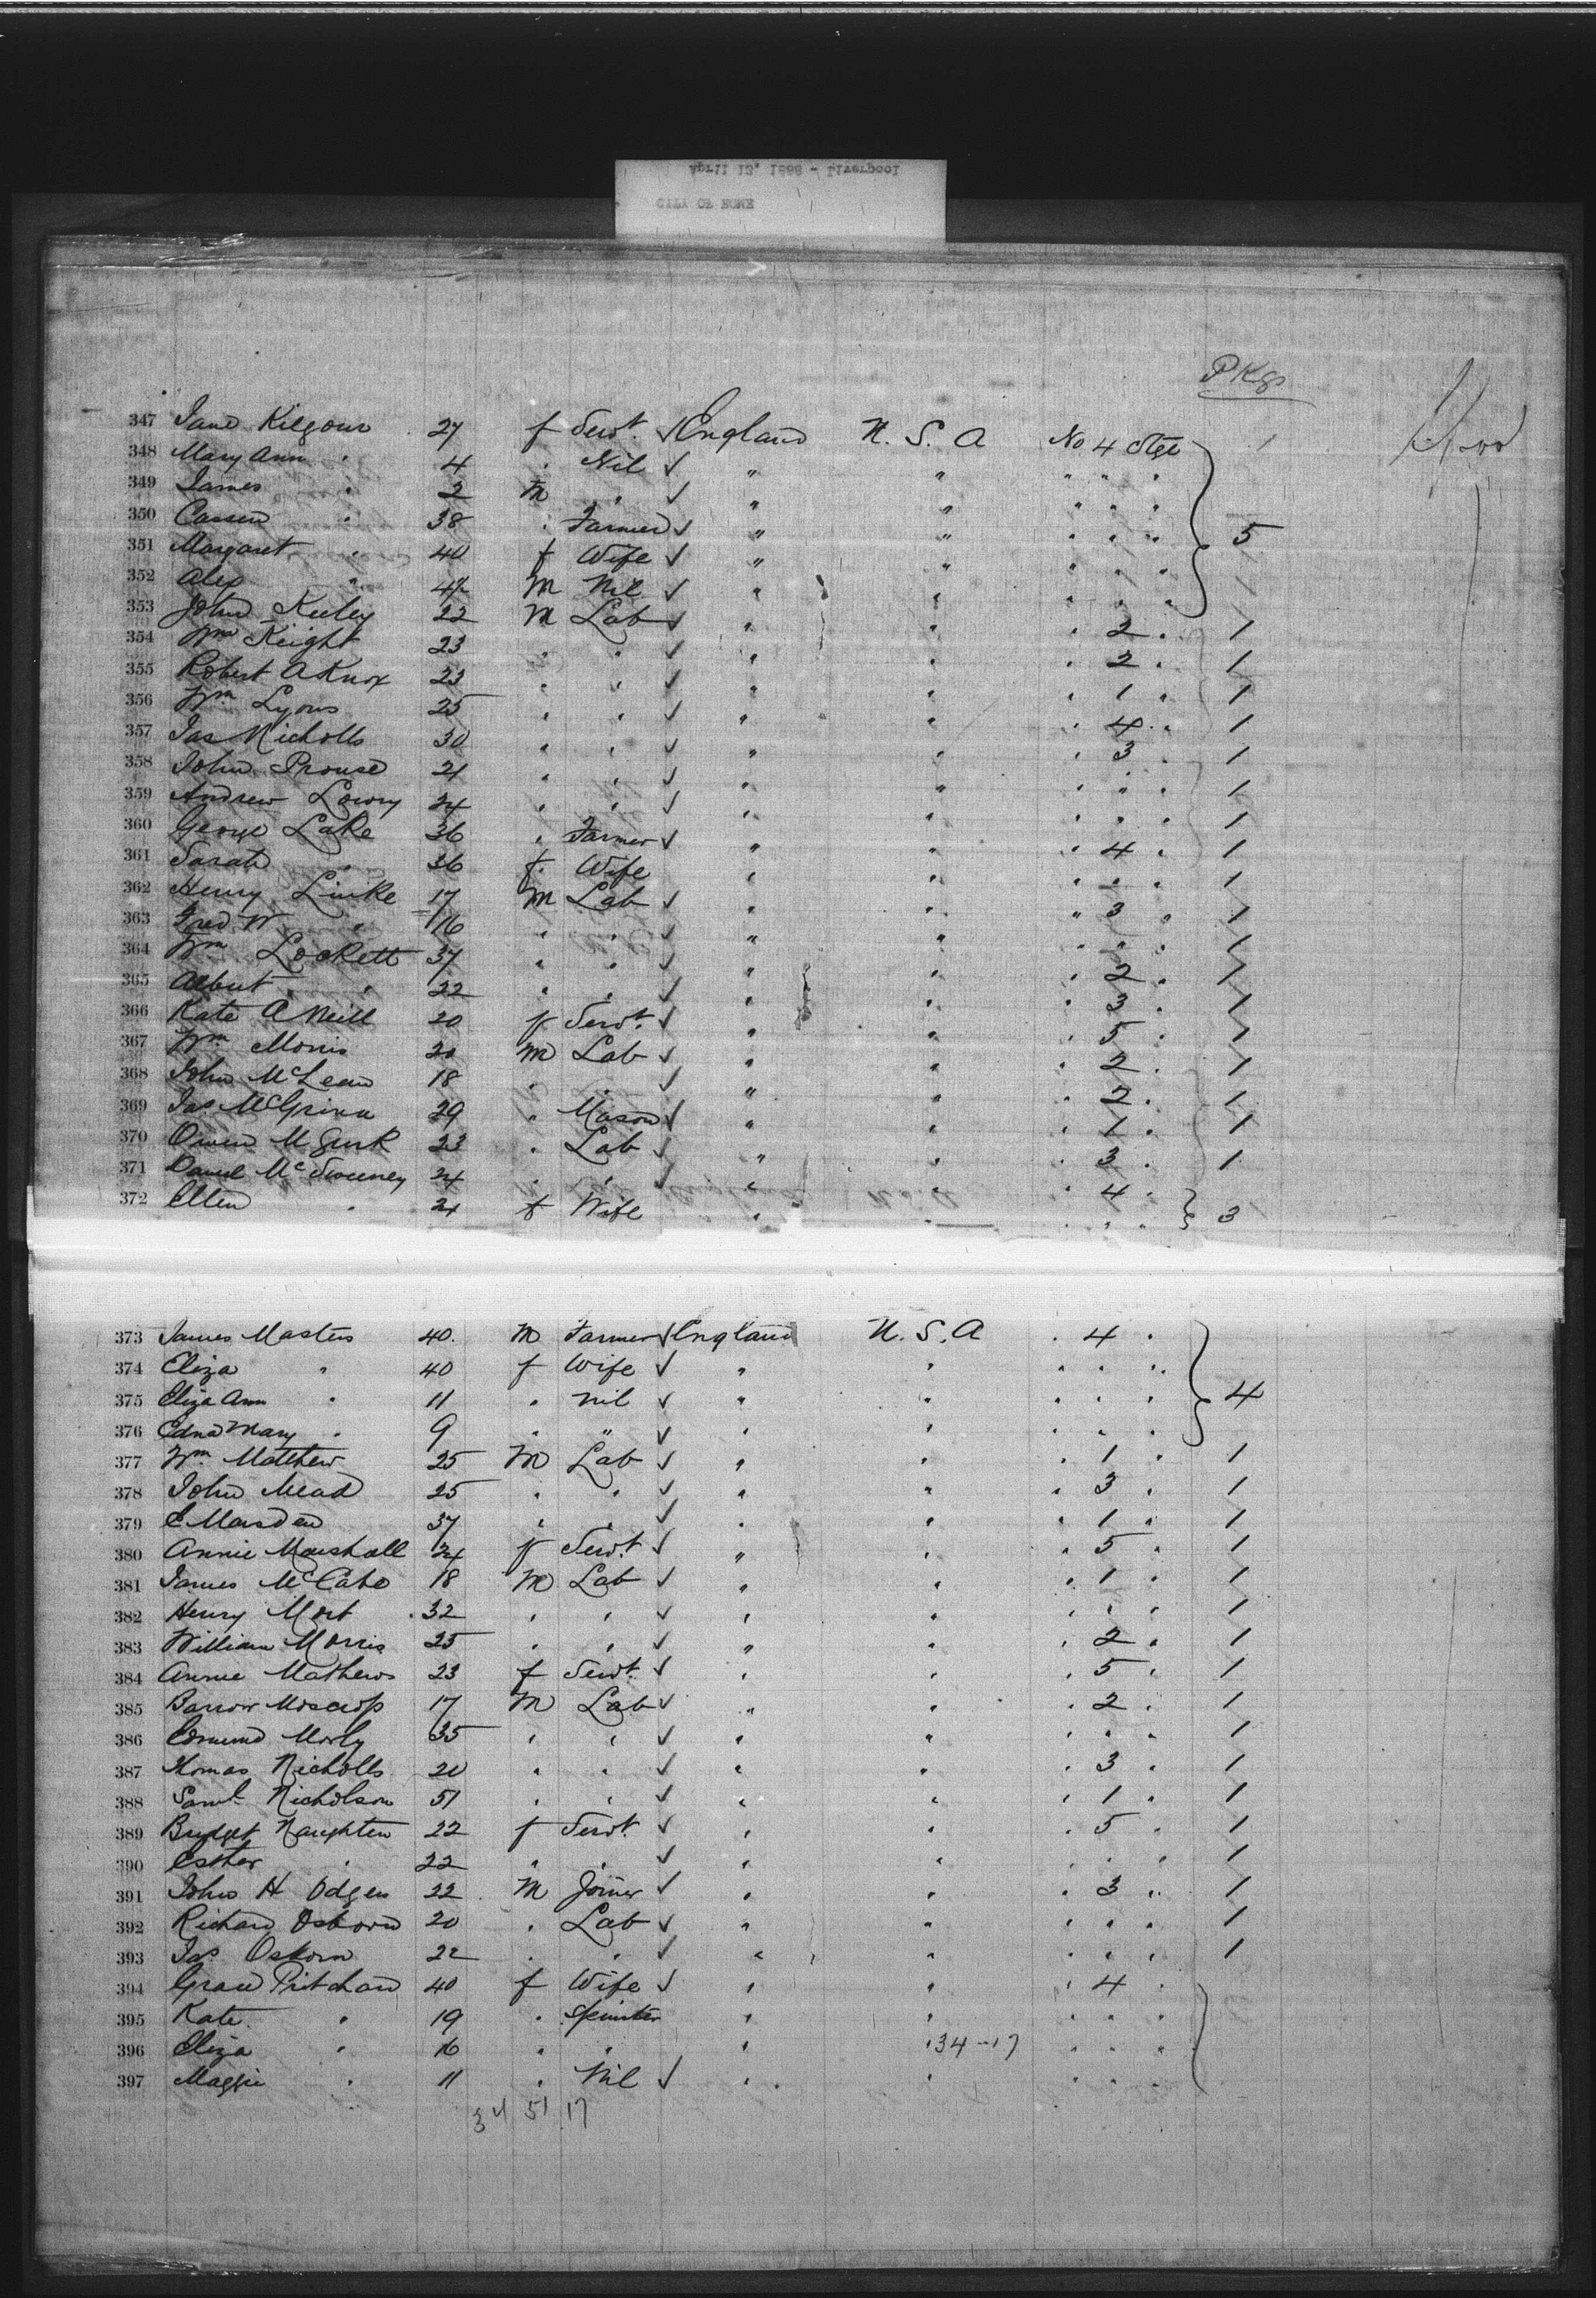 April 13, 1888 - Liverpool
CITY OF ROME
PKgs
347 Jane Kilgour 27 f Servt. ✓ England U. S. A No 4 Stge 1
348 Mary Ann " 4 " Nil ✓ " " " " "
349 James " 2 M " ✓ " " " " "
350 " 38 " Farmer ✓ " " " " " 5
351 Margaret " 40 f Wife ✓ " " " " "
352 Alex " 4 M Nil ✓ " " " " "
353 John Keeley 22 M Lab ✓ " " " 2 " 1
354 Wm Keight 23 " " ✓ " " " 2 " 1
355 Robert A Knox 23 " " ✓ " " " 1 " 1
356 Wm Lyons 25 " " ✓ " " " 4 " 1
357 Jas Nicholls 30 " " ✓ " " " 3 " 1
358 John Prouse 21 " " ✓ " " " " " 1
359 Andrew Lowry 24 " " ✓ " " " " " 1
360 George Lake 36 " Farmer ✓ " " " 4 " 1
361 Sarah " 36 f. Wife " " " " " 1
362 Henry Linke 17 M Lab ✓ " " " 3 " 1
363 Fred W " 16 " " ✓ " " " " " 1
364 Wm Lockett 37 " " ✓ " " " 2 " 1
365 Albert " 22 " " ✓ " " " 3 " 1
366 Kate A Neill 20 f Servt. ✓ " " " 5 " 1
367 Wm Morris 20 M Lab ✓ " " " 2 " 1
368 John McLean 18 " " ✓ " " " 2 " 1
369 Jas 29 " Mason ✓ " " " 1 " 1
370 Owen McGurk 23 " Lab ✓ " " " 3 " 1
371 Daniel McSweeney 24 " " ✓ " " " 4 "
372 Ellen " 24 f Wife " " " " " 3
373 James Masters 40. M Farmer ✓ England U. S. A " 4 "
374 Eliza " 40 f Wife ✓ " " " " "
375 Eliza Ann " 11 " Nil ✓ " " " " " 4
376 Edna Mary " 9 " " ✓ " " " " "
377 Wm Matthew 25 M Lab ✓ " " " 1 " 1
378 John Mead 25 " " ✓ " " " 3 " 1
379 E Marsden 37 " " ✓ " " " 1 " 1
380 Annie Marshall 24 f Servt ✓ " " " 5 " 1
381 James McCabe 18 M Lab ✓ " " " 1 " 1
382 Henry Mort 32 " " ✓ " " " " " 1
383 William Morris 25 " " ✓ " " " 2 " 1
384 Annie Mathews 23 f Servt. ✓ " " " 5 " 1
385 Barrow Moscrop 17 M Lab ✓ " " " 2 " 1
386 Edmund Morly 35 " " ✓ " " " " " 1
387 Thomas Nicholls 20 " " ✓ " " " 3 " 1
388 Saml Nicholson 51 " " ✓ " " " 1 " 1
389 Bridget Naughten 22 f Servt. ✓ " " " 5 " 1
390 Esther " 22 " " ✓ " " " " " 1
391 John H Odgen 22 M Joiner ✓ " " " 3 " 1
392 Richard Osborn 20 " Lab ✓ " " " " " 1
393 Jas Osborn 22 " " ✓ " " " " " 1
394 Grace Pritchard 40 f Wife ✓ " " " 4 "
395 Kate " 19 " Spinster " " " " "
396 Eliza " 16 " " " 34-17 " " "
397 Maggie " 11 " Nil ✓ " " " " "
34 51 17